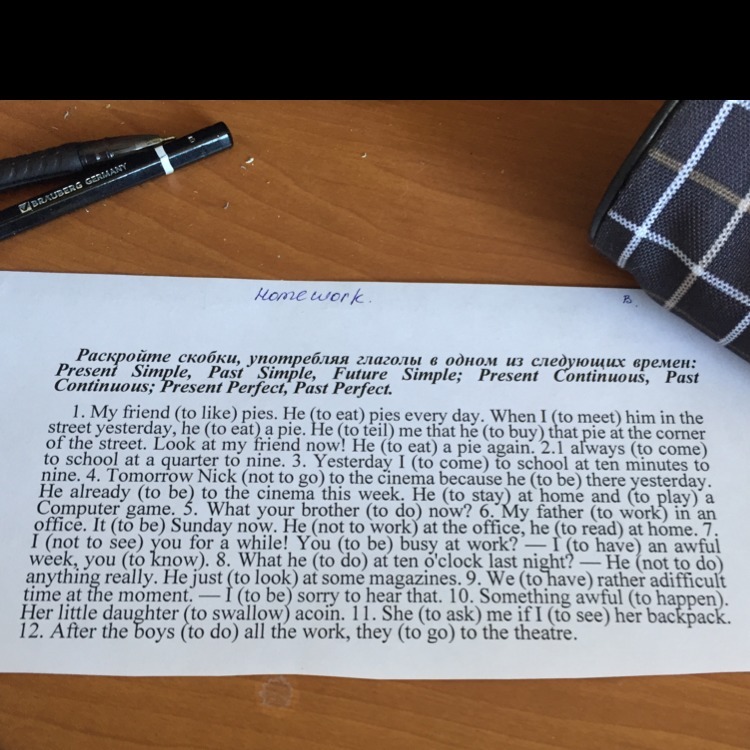 BRAUBERG GERMANY
Homework.
B.
Раскройте скобки, употребляя глаголы в одном из следующих времен:
Present Simple, Past Simple, Future Simple; Present Continuous, Past
Continuous; Present Perfect, Past Perfect.
1. My friend (to like) pies. He (to eat) pies every day. When I (to meet) him in the
street yesterday, he (to eat) a pie. He (to teil) me that he (to buy) that pie at the corner
of the street. Look at my friend now! He (to eat) a pie again. 2.1 always (to come)
to school at a quarter to nine. 3. Yesterday I (to come) to school at ten minutes to
nine. 4. Tomorrow Nick (not to go) to the cinema because he (to be) there yesterday.
He already (to be) to the cinema this week. He (to stay) at home and (to play) a
Computer game. 5. What your brother (to do) now? 6. My father (to work) in an
office. It (to be) Sunday now. He (not to work) at the office, he (to read) at home. 7.
I (not to see) you for a while! You (to be) busy at work? — I (to have) an awful
week, you (to know). 8. What he (to do) at ten o'clock last night? — He (not to do)
anything really. He just (to look) at some magazines. 9. We (to have) rather adifficult
time at the moment. — I (to be) sorry to hear that. 10. Something awful (to happen).
Her little daughter (to swallow) acoin. 11. She (to ask) me if I (to see) her backpack.
12. After the boys (to do) all the work, they (to go) to the theatre.